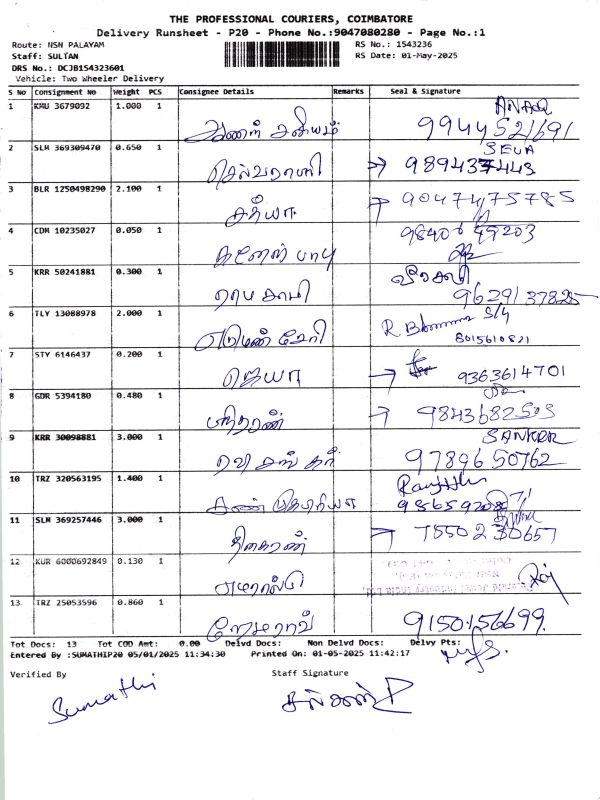 THE PROFESSIONAL COURIERS, COIMBATORE
Delivery Runsheet - P20 - Phone No.:9047080280 - Page No.:1
Route: NSN PALAYAM RS No.: 1543236
Staff: SULTAN RS Date: 01-May-2025
DRS No.: DCJB154323601
Vehicle: Two Wheeler Delivery
S No Consignment No Weight PCS Consignee Details Remarks Seal & Signature
1 KMU 3679092 1.000 1 9944521691
2 SLM 369309470 0.650 1 செல்வராணி SELVA 9894377443
3 BLR 1250498290 2.100 1 சத்யா 9047475785
4 CDM 10235027 0.050 1 கணேஷ் பாபு 9840649203
5 KRR 50241881 0.300 1 9629137825
6 TLY 13088978 2.000 1 8015610821
7 STY 6146437 0.200 1 ஜெயா 9363614701
8 GDR 5394180 0.480 1 9843682505
9 KRR 30098881 3.000 1 ரவி சங்கர் SANKAR 9789650762
10 TRZ 320563195 1.400 1
11 SLM 369257446 3.000 1 7550230657
12 KUR 6000692849 0.130 1
13 TRZ 25053596 0.860 1 9150156699
Tot Docs: 13 Tot COD Amt: 0.00 Delvd Docs: Non Delvd Docs: Delvy Pts:
Entered By :SUMATHIP20 05/01/2025 11:34:30 Printed On: 01-05-2025 11:42:17
Verified By Staff Signature
Sumathi